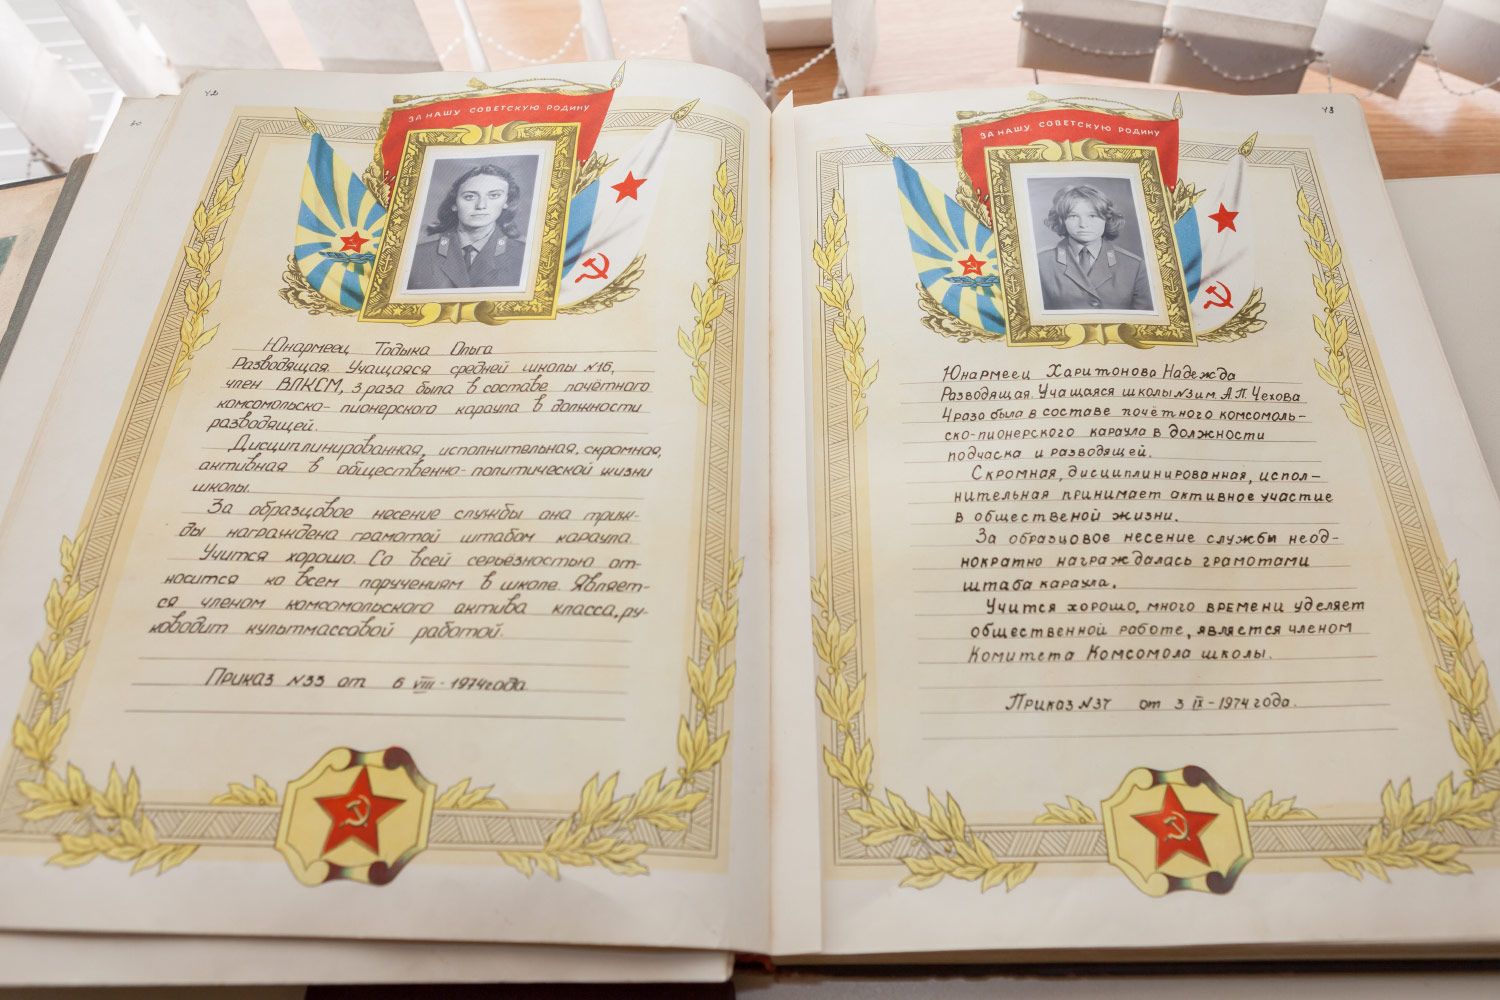 42
ЗА НАШУ СОВЕТСКУЮ РОДИНУ
Юнармеец Тодыка Ольга
Разводящая. Учащаяся средней школы №16,
член ВЛКСМ, 3 раза была в составе почётного
комсомольско-пионерского караула в должности
разводящей.
Дисциплинированная, исполнительная, скромная,
активная в общественно-политической жизни
школы.
За образцовое несение службы она триж-
ды награждена грамотой штабом караула.
Учится хорошо. Со всей серьёзностью от-
носится ко всем поручениям в школе. Являет-
ся членом комсомольского актива класса, ру-
ководит культмассовой работой.
Приказ №33 от 6 VIII - 1974 года
43
ЗА НАШУ СОВЕТСКУЮ РОДИНУ
Юнармеец Харитонова Надежда
Разводящая. Учащаяся школы №3 им. А.П. Чехова
4 раза была в составе почётного комсомоль-
ско-пионерского караула в должности
подчаска и разводящей.
Скромная, дисциплинированная, испол-
нительная принимает активное участие
в общественой жизни.
За образцовое несение службы неод-
нократно награждалась грамотами
штаба караула.
Учится хорошо, много времени уделяет
общественной работе, является членом
Комитета Комсомола школы.
Приказ №37 от 3 IX - 1974 года.